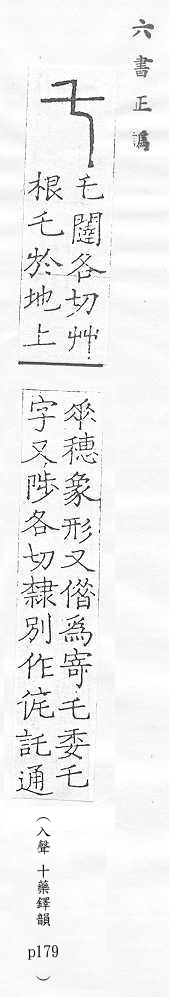 六書正譌
乇
乇闥各切艸
根乇於地上
𠂹穗象形又借爲寄乇委乇
字又陟各切隸別作侂託通
（入聲 十藥鐸韻 p179）